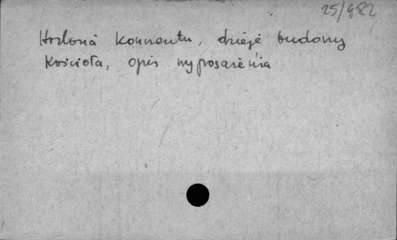 25/982
Historia konwentu, dzieje budowy
kościoła, opis wyposażenia